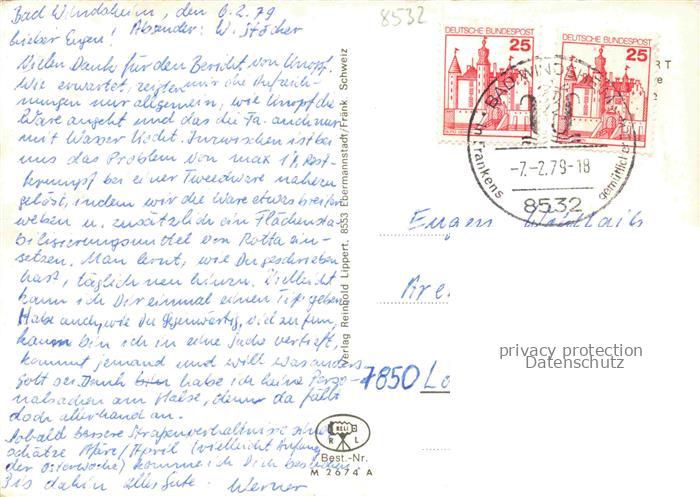 Bad Windsheim, den 6.2.79
Absender: W. Stöcker
Lieber Eugen!
Vielen Dank für den Bericht von Knopf.
Wie erwartet, zeigten mir die Aufzeich-
nungen nur allgemein, wie Knopf die
Ware angeht und das die Fa. auch nur
mit Wasser kocht. Inzwischen ist bei
uns das Problem von max 1% Rest-
krumpf bei einer Tweedware nahezu
gelöst, indem wir die Ware etwas breiter
weben u. zusätzlich ein Flächensta-
bilisierungsmittel von Rotta ein-
setzen. Man lernt, wie Du geschrieben
hast, täglich neu hinzu. Vielleicht
kann ich Dir einmal einen Tip geben.
Habe auch, wie Du gegenwärtig, viel zu tun,
kaum bin ich in eine Sache vertieft,
kommt jemand und will was anders
Gott sei Dank habe ich keine Perso-
nalsachen am Halse, denn da fällt
doch allerhand an.
Sobald bessere Straßenverhältnisse sind
schätze März/April (vielleicht Anfang
der Osterwoche) komme ich Dich besuchen
Bis dahin alles Gute. Werner
Verlag Reinhold Lippert, 8553 Ebermannstadt/Fränk. Schweiz
8532
DEUTSCHE BUNDESPOST
25
DEUTSCHE BUNDESPOST
25
BAD WINDSHEIM
-7.-2.79-18
in Frankens
8532
Eugen
Kre
7850 Lö
privacy protection
Datenschutz
RELI
R L
Best.-Nr.
M 2674 A